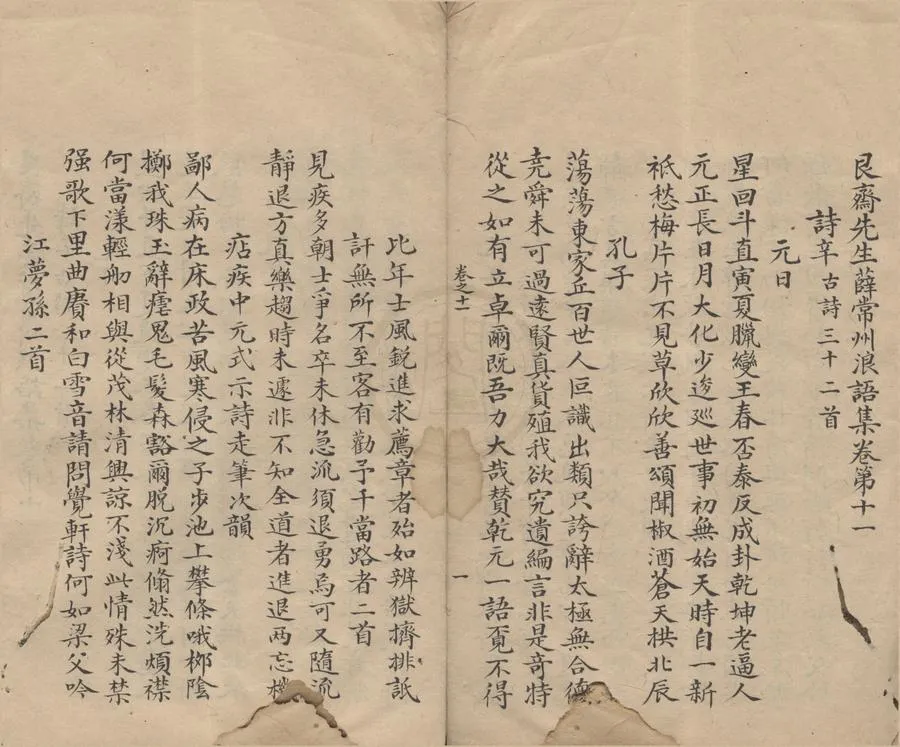 艮齋先生薛常州浪語集卷第十一
詩辛古詩三十二首
元日
星回斗直寅夏臘變王春否泰反成卦乾坤老逼人
元正長日月大化少逡巡世事初無始天時自一新
祗愁梅片片不見草欣欣善頌聞椒酒蒼天拱北辰
孔子
蕩蕩東家丘百世人叵識出類只誇辭太極無合德
堯舜未可過遠賢真貨殖我欲究遺編言非是竒特
從之如有立卓爾既吾力大哉賛乾元一語覔不得
卷之十一
一
比年士風銳進求薦章者殆如辨獄擠排詆
訐無所不至客有勸予干當路者二首
見疾多朝士爭名卒未休急流須退勇烏可又隨流
靜退方真樂趨時未遽非不知全道者進退两忘機
痁疾中元式示詩走筆次韻
鄙人病在床政苦風寒侵之子步池上攀條哦栁陰
擲我珠玉辭瘧鬼毛髮森豁爾脫沉痾翛然洗煩襟
何當漾輕舠相與從茂林清興諒不淺此情殊未禁
强歌下里曲賡和白雪音請問覺軒詩何如梁父吟
江夢孫二首